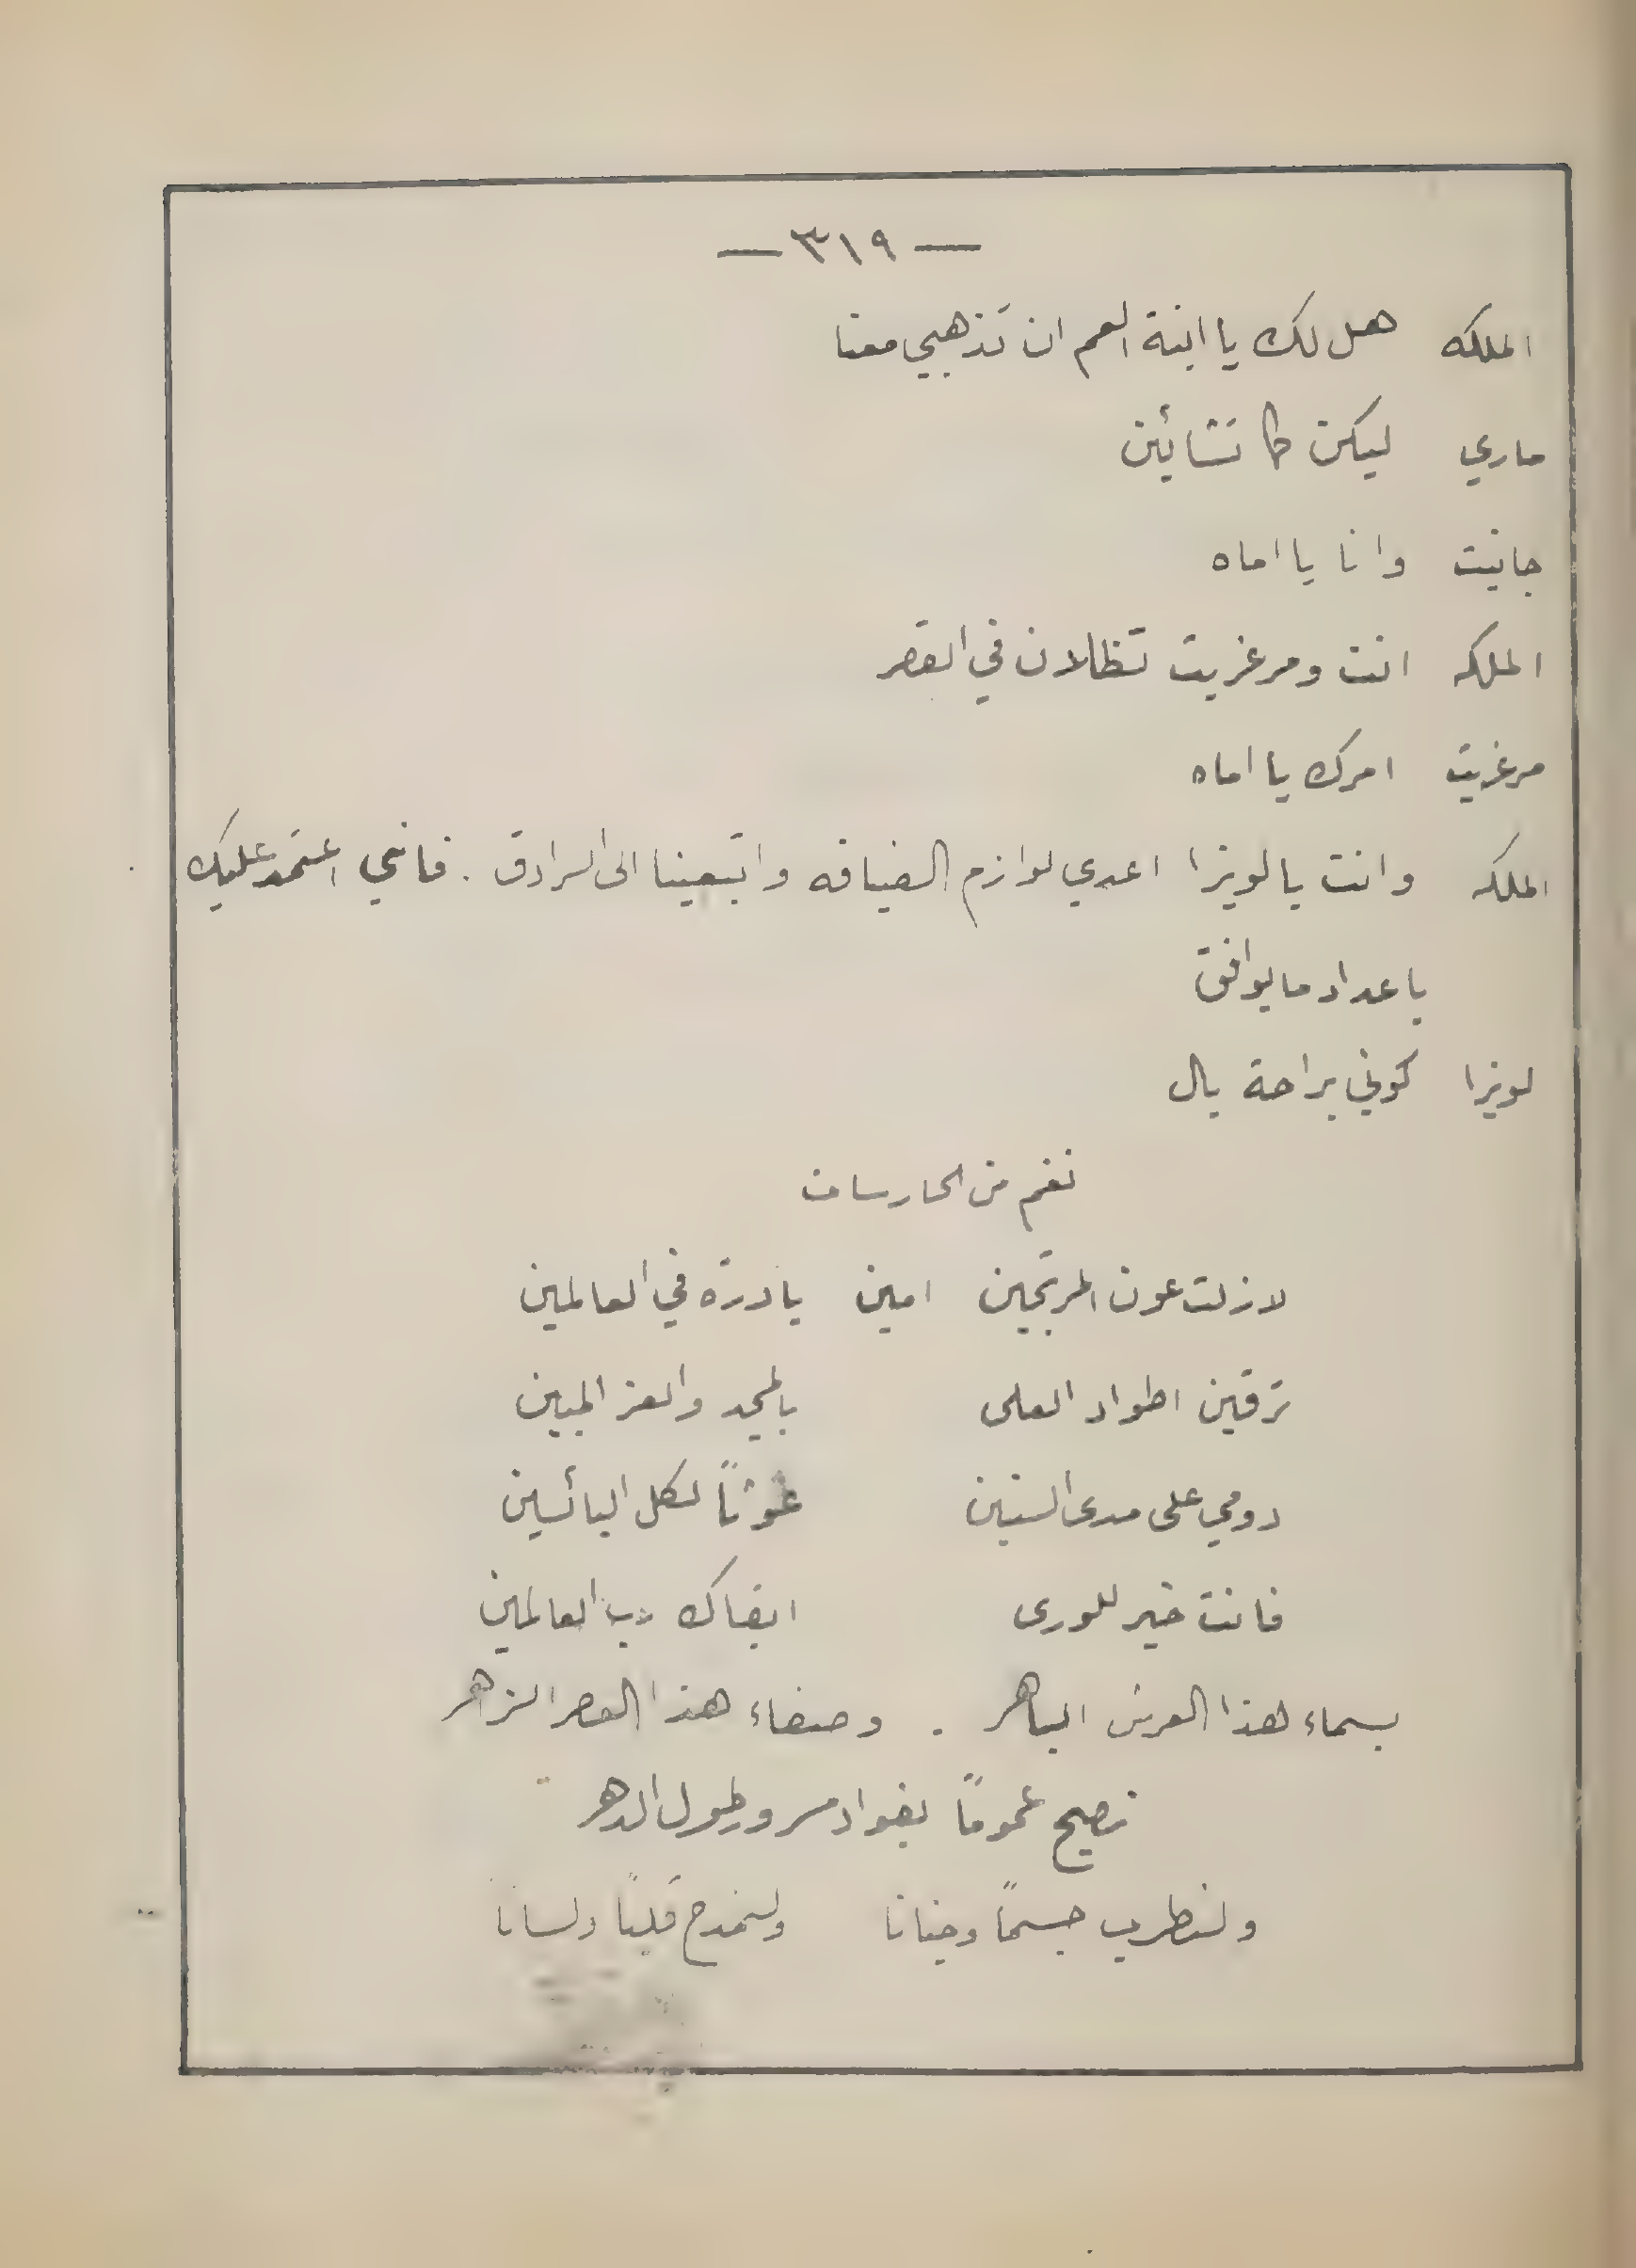 — ٣١٩ —
الملكه هل لك يا ابنة العم ان تذهبي معنا
ماري ليكن كما تشائين
جانيت وانا يا اماه
الملكه انت ومرغريت تظلان في القصر
مرغريت امرك يا اماه
الملكه وانت يا لويزا اعدي لوازم الضيافه واتبعينا الى السرادق . فانني اعتمد عليك
باعداد ما يوافق
لويزا كوني براحة بال
نغم من الحارسات
لا زلت عون المرتجين امين يا درة في العالمين
ترقين اطواد العلى بالمجد والعز المبين
دومي على مدى السنين غوثاً لكل البائسين
فانت خير للورى ابقاك رب العالمين
بسماء هذا العرش الباهر . وصفاء هذا العصر الزاهر
نصيح عموماً بفواد مسرور طول الدهر
ولنطرب جسماً وجنانا ولنمدح قلباً ولسانا